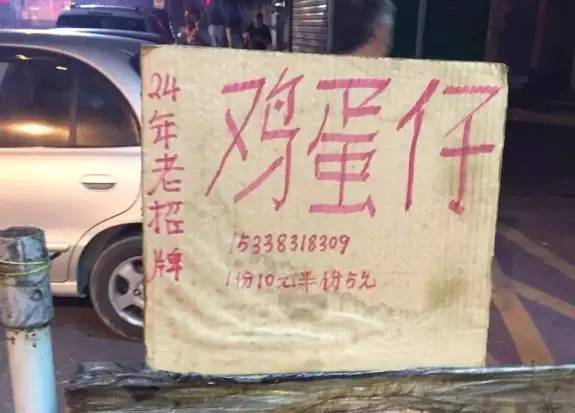 24年老招牌
鸡蛋仔
15338318309
1份10元半份5元